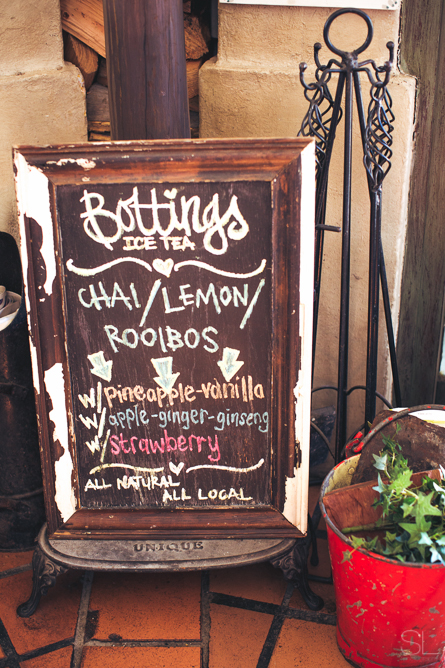 Bottings
ICE TEA
CHAI/LEMON/
ROOIBOS
w/pineapple-vanilla
w/apple-ginger-ginseng
w/strawberry
ALL NATURAL
ALL LOCAL
UNIQUE
SL